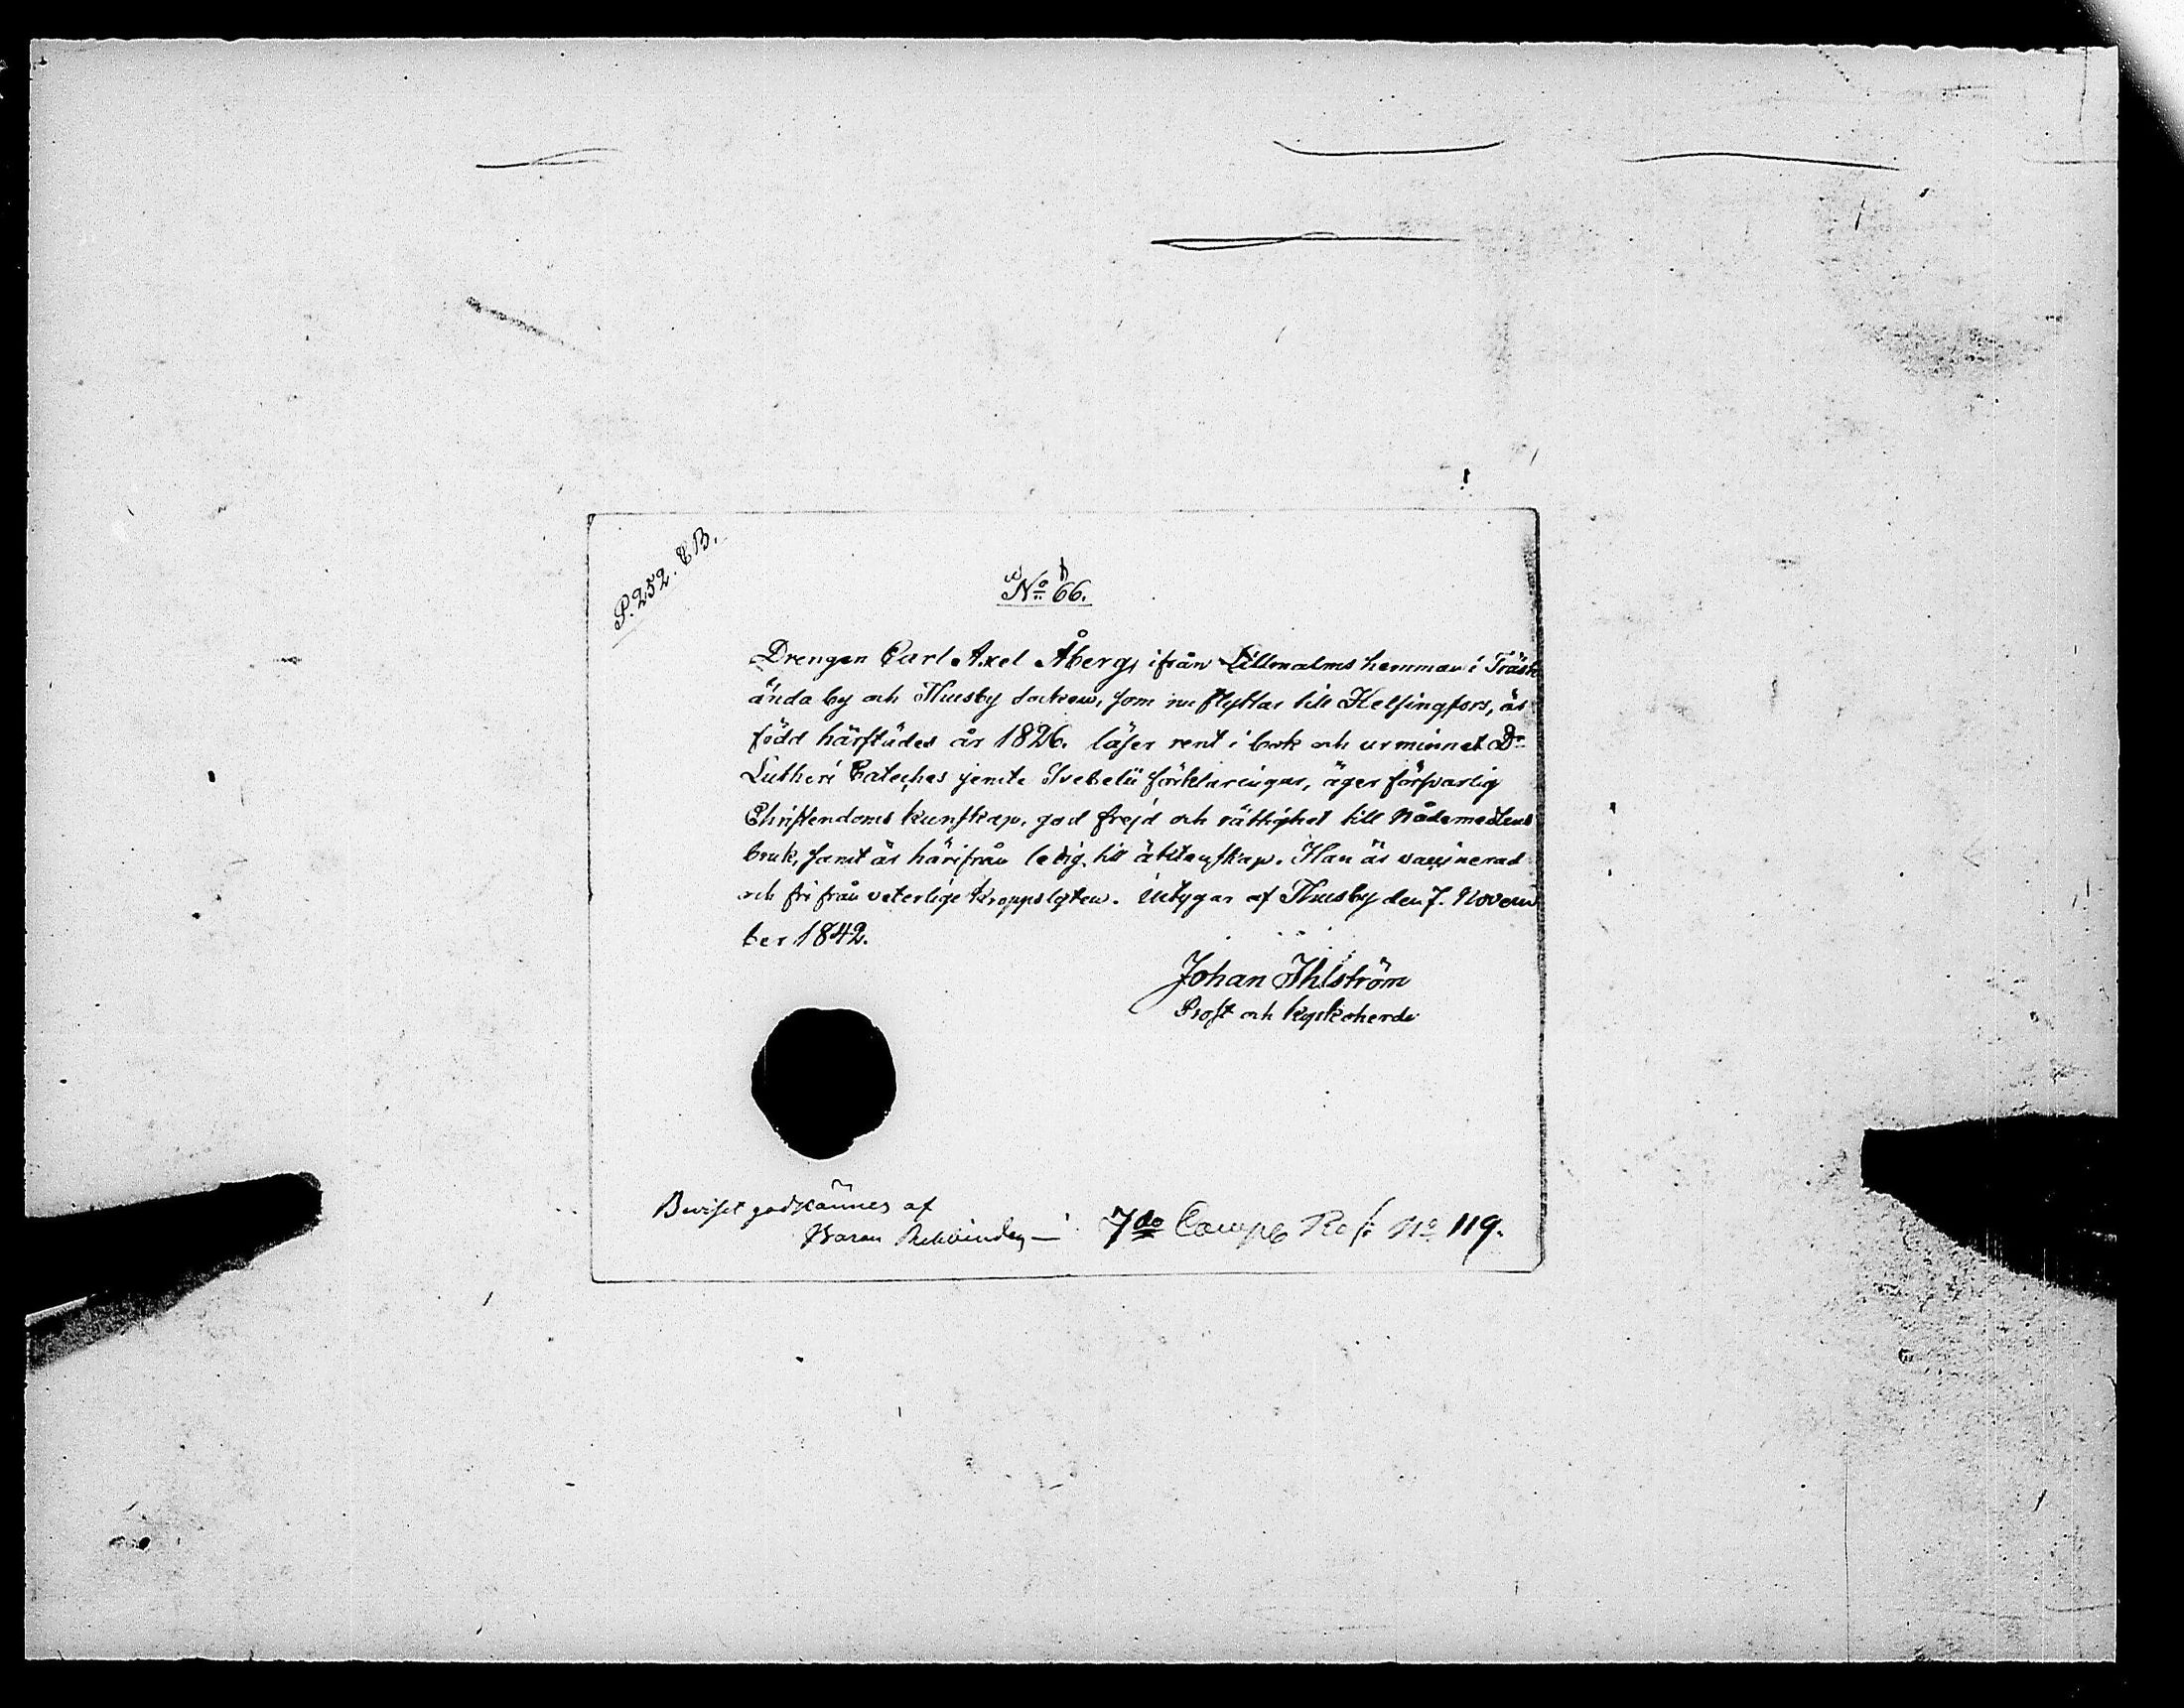 P. 252. C B.
No 66.
Drengen Carl Axel Åberg, ifrån Lillmalms hemman i Träsk
ända by och Thusby socken, som nu flyttar till Helsingfors, är
född härstädes år 1826. läser rent i bok och ur minnet Dr
Lutheri Cateches jemte Svebelii förklaringar, äger försvarlig
Christendoms kunskap, god frejd och rättighet till Nådemedlens
bruk, samt är härifrån ledig till äktenskap. Han är vaccinerad
och fri från veterlige kroppslyten. Intygar af Thusby den 7. Novem
ber 1842.
Johan Ihlström
Prost och Kyrkoherde
Beviset godkännes af
Baron Rehbinder
7de Comp Rot No 119.